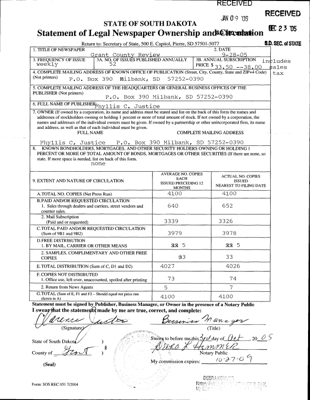 RECEIVED
RECEIVED
JAN 09 '06
DEC 23 '05
S.D. SEC. of STATE
STATE OF SOUTH DAKOTA
Statement of Legal Newspaper Ownership and Circulation
Return to: Secretary of State, 500 E. Capitol, Pierre, SD 57501-5077
1. TITLE OF NEWSPAPER
Grant County Review
2. DATE
9-28-05
3. FREQUENCY OF ISSUE
weekly
3A. NO. OF ISSUES PUBLISHED ANNUALLY
52
3B. ANNUAL SUBSCRIPTION
PRICE $ 33.50 --38.00
includes
sales
tax
4. COMPLETE MAILING ADDRESS OF KNOWN OFFICE OF PUBLICATION (Street, City, County, State and ZIP+4 Code)
(Not printers)
P.O. Box 390 Milbank, SD 57252-0390
5. COMPLETE MAILING ADDRESS OF THE HEADQUARTERS OR GENERAL BUSINESS OFFICES OF THE
PUBLISHER (Not printers)
P.O. Box 390 Milbank, SD 57252-0390
6. FULL NAME OF PUBLISHER
Phyllis C. Justice
7. OWNER (If owned by a corporation, its name and address must be stated and list on the back of this form the names and
addresses of stockholders owning or holding 1 percent or more of total amount of stock. If not owned by a corporation, the
names and addresses of the individual owners must be given. If owned by a partnership or other unincorporated firm, its name
and address, as well as that of each individual must be given.
FULL NAME
COMPLETE MAILING ADDRESS
Phyllis C. Justice P.O. Box 390 Milbank, SD 57252-0390
8. KNOWN BONDHOLDERS, MORTGAGES, AND OTHER SECURITY HOLDERS OWNING OR HOLDING 1
PERCENT OR MORE OF TOTAL AMOUNT OF BONDS, MORTGAGES OR OTHER SECURITIES (If there are none, so
state. If more space is needed, list on back of this form.
none
9. EXTENT AND NATURE OF CIRCULATION
AVERAGE NO. COPIES
EACH
ISSUED PRECEDING 12
MONTHS
ACTUAL NO. COPIES
ISSUED
NEAREST TO FILING DATE
A. TOTAL NO. COPIES (Net Press Run)
4100
4100
B. PAID AND/OR REQUESTED CIRCULATION
1. Sales through dealers and carriers, street vendors and
counter sales.
640
652
2. Mail Subscription
(Paid and or requested)
3339
3326
C. TOTAL PAID AND/OR REQUESTED CIRCULATION
(Sum of 9B1 and 9B2)
3979
3978
D. FREE DISTRIBUTION
1. BY MAIL, CARRIER OR OTHER MEANS
5
5
2. SAMPLES, COMPLIMENTARY AND OTHER FREE
COPIES
33
E. TOTAL DISTRIBUTION (Sum of C, D1 and D2)
4027
4026
F. COPIES NOT DISTRIBUTED
1. Office use, left over, unaccounted, spoiled after printing
73
74
2. Return from News Agents
5
7
G. TOTAL (Sum of E, F1 and F2 – Should equal net press run
shown in A)
4100
4100
Statement must be signed by Publisher, Business Manager, or Owner in the presence of a Notary Public
I swear that the statements made by me are true, correct, and complete:
Clarence Justice
Business Manager
(Signature)
(Title)
State of South Dakota
County of Grant
(Seal)
Sworn to before me this 3rd day of Oct 2005
Notary Public
My commission expires: 10-27-09
Form: SOS REC 051 7/2004